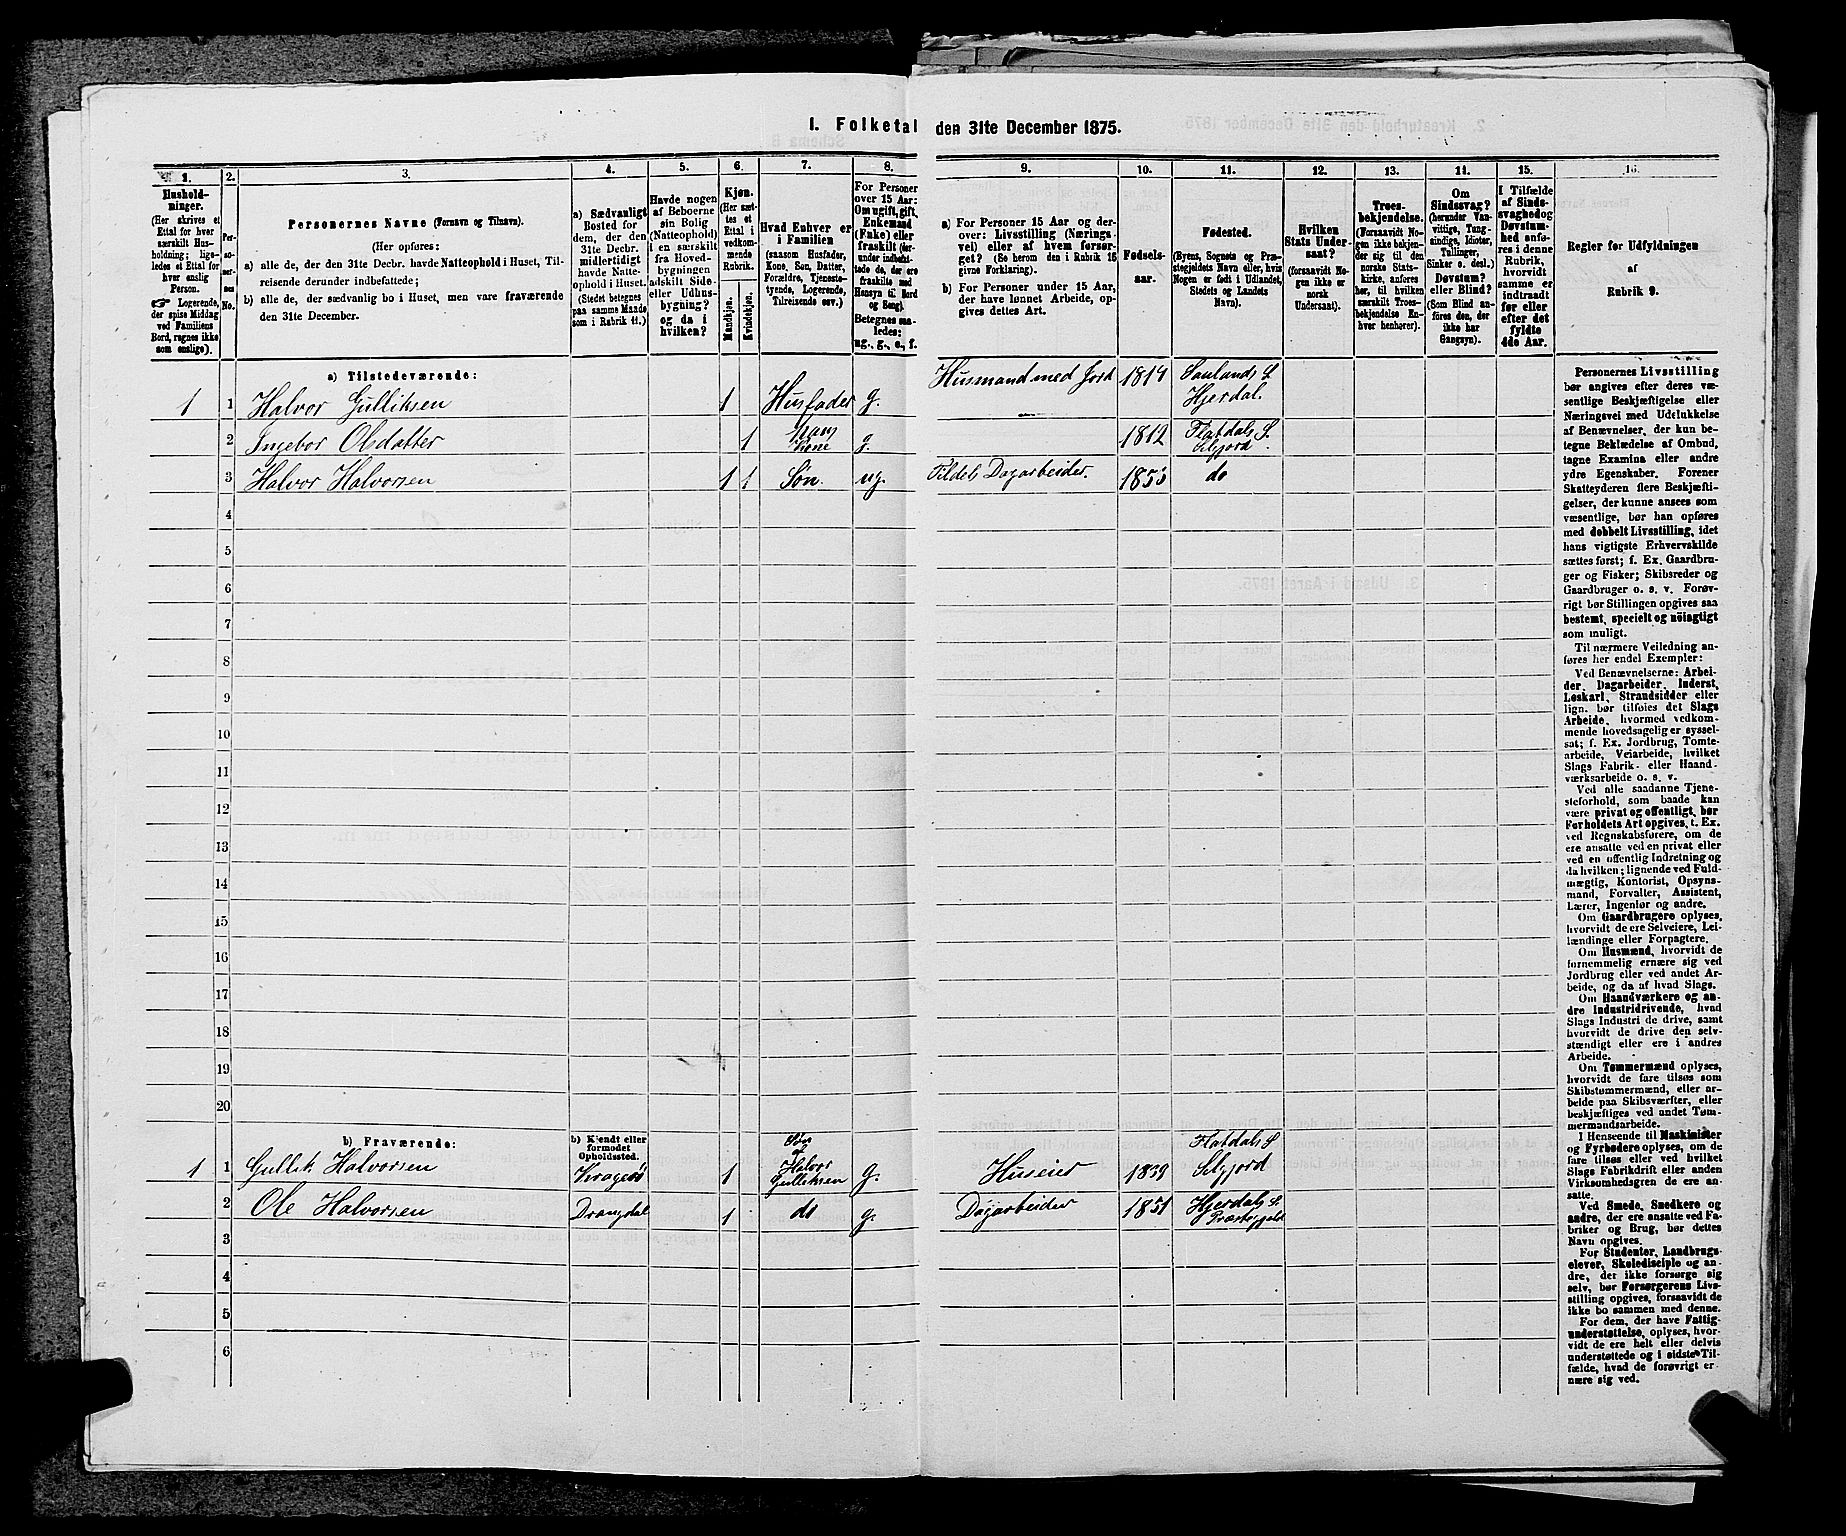 I. Folketal den 31te December 1875.
1.
2.
3.
4.
5.
6.
7.
8.
9.
10.
11.
12.
13.
14.
15.
16.
Hushold-
ninger.
(Her skrives et
Ettal for hver
særskilt Hus-
holdning; lige-
ledes et Ettal for
hver enslig
Person.
☞ Logerende,
der spise Middag
ved Familiens
Bord, regnes ikke
som enslige).
Per-
soner-
nes
No.
Personernes Navne (Fornavn og Tilnavn).
(Her opføres:
a) alle de, der den 31te Decbr. havde Natteophold i Huset, Til-
reisende derunder indbefattede;
b) alle de, der sædvanlig bo i Huset, men vare fraværende
den 31te December.
a) Sædvanligt
Bosted for
dem, der den
31te Decbr.
midlertidigt
havde Natte-
ophold i Huset.
(Stedet betegnes
paa samme Maade
som i Rubrik 11.)
Havde nogen
af Beboerne
sin Bolig
(Natteophold)
i en særskilt
fra Hoved-
bygningen
adskilt Side-
eller Udhus-
bygning?
og da i
hvilken?
Kjøn.
(Her sæt-
tes et
Ettal i
vedkom-
mende
Rubrik.
Mandkjøn.
Kvindekjøn.
Hvad Enhver er
i Familien
(saasom Husfader,
Kone, Søn, Datter,
Forældre, Tjeneste-
tyende, Logerende,
Tilreisende osv.)
For Personer
over 15 Aar:
Om ugift, gift,
Enkemand
(Enke) eller
fraskilt (der-
under indbefat-
tede de, der ere
fraskilte med
Hensyn til Bord
og Seng).
Betegnes saa-
ledes:
ug., g., e., f.
a) For Personer 15 Aar og der-
over: Livsstilling (Nærings-
vei) eller af hvem forsør-
get? (Se herom den i Rubrik 16
givne Forklaring).
b) For Personer under 15 Aar,
der have lønnet Arbeide, op-
gives dettes Art.
Fødsels-
aar.
Fødested.
(Byens, Sognets og Præ-
stegjeldets Navn eller, hvis
Nogen er født i Udlandet,
Stedets og Landets
Navn).
Hvilken
Stats Under-
saat?
(forsaavidt No-
gen ikke er
norsk
Undersaat).
Troes-
bekjendelse.
(Forsaavidt No-
gen ikke bekjen-
der sig til den
norske Stats-
kirke, anføres
her, til hvilken
særskilt Troes-
bekjendelse En-
hver henhører).
Om
Sindssvag?
(herunder Van-
vittige, Tung-
sindige, Idioter,
Tullinger,
Sinker o. desl.)
Døvstum?
eller Blind?
(Som Blind an-
føres den, der
ikke har
Gangsyn).
I Tilfælde
af Sinds-
svaghed og
Døvstum-
hed anfø-
res i denne
Rubrik,
hvorvidt
samme er
indtraadt
før eller
efter det
fyldte
4de Aar.
Regler for Udfyldningen
af
Rubrik 9.
a) Tilstedeværende:
1 1 Halvor Gulliksen 1 Husfader g. Husmand med Jord 1814 Saulands S. Hjerdal.
2 Ingebor Olsdatter 1 hans Kone g. 1812 Flatdals S. Selgjord.
3 Halvor Halvorsen 1 1 Søn. ug. Tildels Dagarbeider. 1853 do
4
5
6
7
8
9
10
11
12
13
14
15
16
17
18
19
20
b) Fraværende:
b) Kjendt eller
formodet
Opholdssted.
1 1 Gullik Halvorsen Kragerø 1 Søn af Halvor Gulliksen g. Huseier 1839 Flatdals S. Selgjord
2 Ole Halvorsen Drangdal 1 do g. Dagarbeider 1851 Hjerdals S. Præstegjeld
3
4
5
6
Personernes Livsstilling
bør angives efter deres væ-
sentlige Beskjæftigelse eller
Næringsvei med Udelukkelse
af Benævnelser, der kun be-
tegne Beklædelse af Ombud,
tagne Examina eller andre
ydre Egenskaber. Forener
Skatteyderen flere Beskjæfti-
gelser, der kunne ansees som
væsentlige, bør han opføres
med dobbelt Livsstilling, idet
hans vigtigste Erhvervskilde
sættes først; f. Ex. Gaardbru-
ger og Fisker; Skibsreder og
Gaardbruger o. s. v. Forøv-
rigt bør Stillingen opgives saa
bestemt, specielt og nöiagtigt
som muligt.
Til nærmere Veiledning an-
føres her endel Exempler:
Ved Benævnelserne: Arbei-
der, Dagarbeider, Inderst,
Løskarl, Strandsidder eller
lign. bør tilføies det Slags
Arbeide, hvormed vedkom-
mende hovedsagelig er syssel-
sat; f. Ex. Jordbrug, Tomte-
arbeide, Veiarbeide, hvilket
Slags Fabrik- eller Haand-
værksarbeide o. s. v.
Ved alle saadanne Tjene-
steforhold, som baade kan
være privat og offentligt, bør
Forholdets Art opgives, t. Ex.
ved Regnskabsførere, om de
ere ansatte ved en privat eller
ved en offentlig Indretning og
da hvilken; lignende ved Fuld-
mægtig, Kontorist, Opsyns-
mand, Forvalter, Assistent,
Lærer, Ingeniør og andre.
Om Gaardbrugere oplyses,
hvorvidt de ere Selveiere, Lei-
lændinge eller Forpagtere.
Om Husmænd, hvorvidt de
fornemmelig ernære sig ved
Jordbrug eller ved andet Ar-
beide, og da af hvad Slags.
Om Haandværkere og an-
dre Industridrivende, hvad
Slags Industri de drive, samt
hvorvidt de drive den selv-
stændigt eller ere i andres
Arbeide.
Om Tømmermænd oplyses,
hvorvidt de fare tilsøs som
Skibstømmermænd, eller ar-
beide paa Skibsværfter, eller
beskjæftiges ved andet Tøm-
mermandsarbeide.
I Henseende til Maskinister
og Fyrbødere oplyses, om de
fare tilsøs eller ved hvilken
Slags Fabrikdrift eller anden
Virksomhedsgren de ere an-
satte.
Ved Smede, Snedkere og
andre, der ere ansatte ved Fa-
briker og Brug, bør dettes
Navn opgives.
For Studenter, Landbrugs-
elever, Skoledisciple og an-
dre, der ikke forsørge sig
selv, bør Forsørgerens Livs-
stilling opgives, forsaavidt de
ikke bo sammen med denne.
For dem, der have Fattig-
understøttelse, oplyses, hvor-
vidt de ere helt eller delvis
understøttede og i sidste Til-
fælde, hvad de forøvrigt er-
nære sig ved.